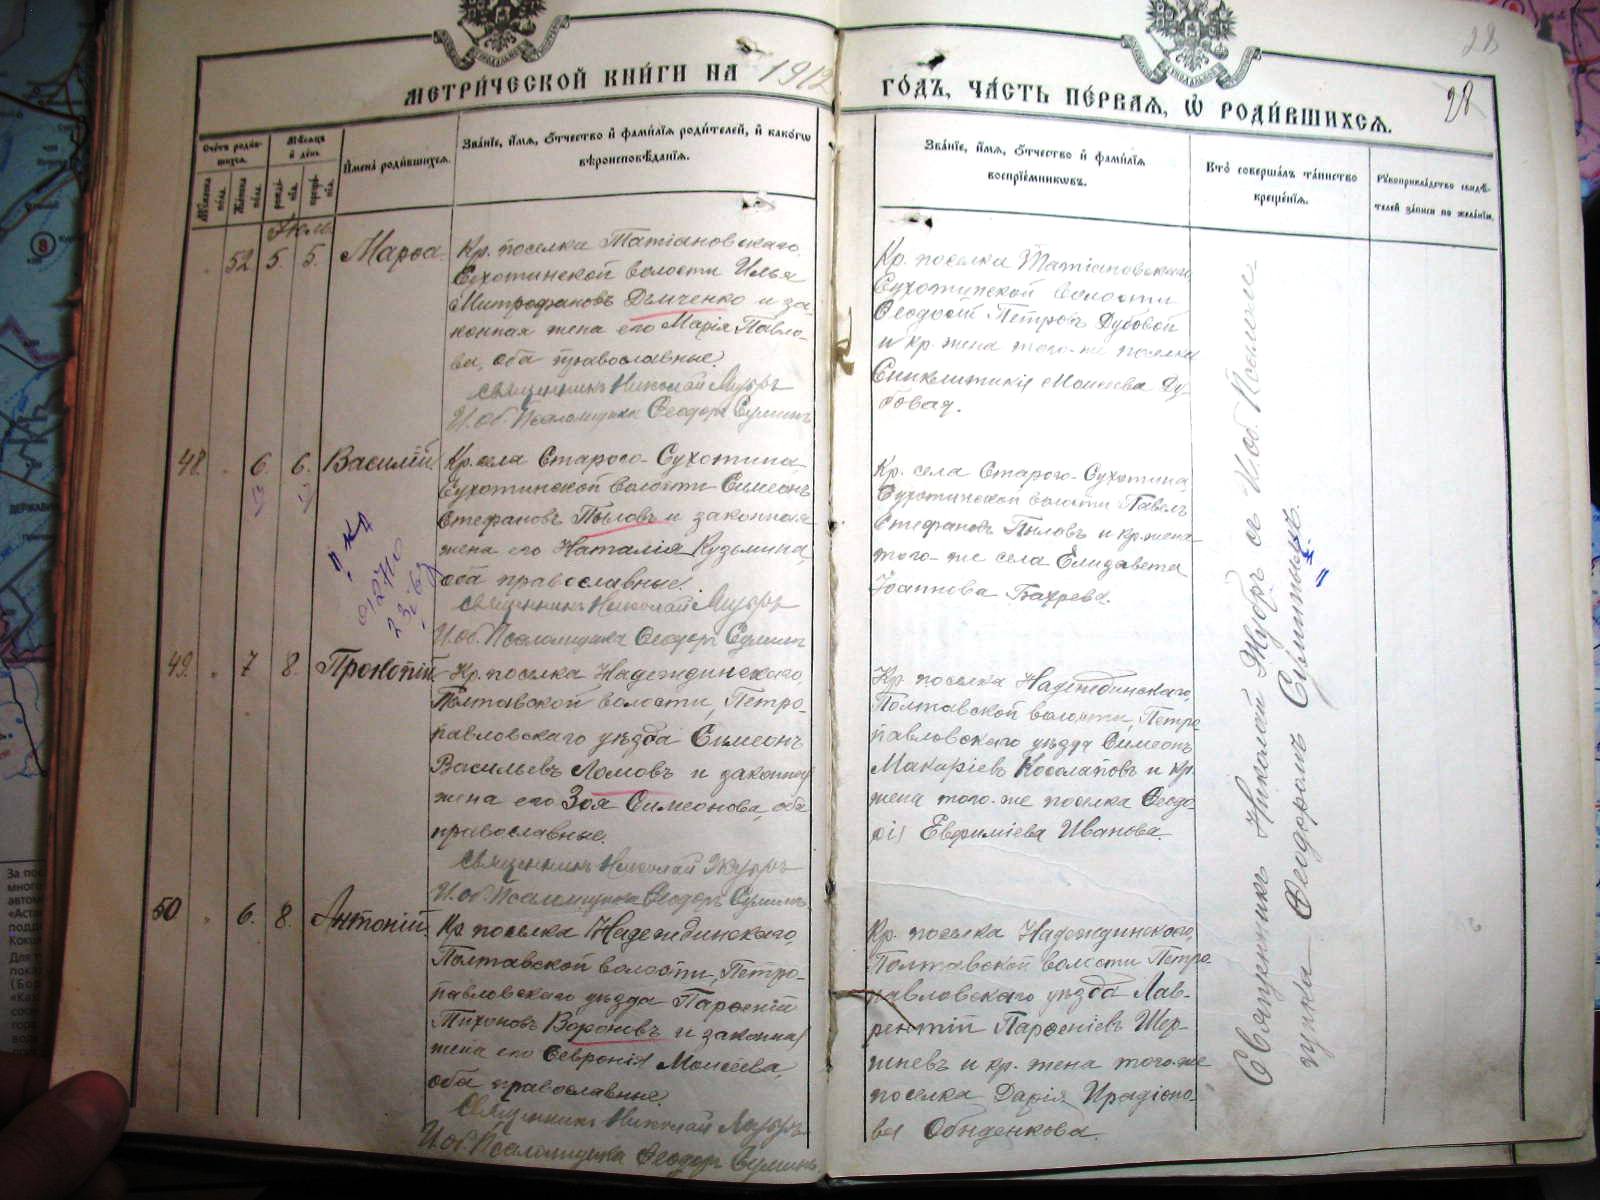 28
МЕТРИ́ЧЕСКОЙ КНИ́ГИ НА 1912
ГО́ДЪ, ЧА́СТЬ ПЕ́РВАЯ, Ѿ РОДИ́ВШИХСЯ.
28
Счётъ роди́вшихся.
Мѣ́сяцъ и҆ де́нь
И҆мена̀ роди́вшихся.
Зва́нїе, и҆́мя, ѻ҆́тчество и҆ фами́лїя роди́телей, и҆ како́гѡ
вѣроисповѣ́данїя.
Зва́нїе, и҆́мя, ѻ҆́тчество и҆ фами́лїя
воспрїе́мникѡвъ.
Кто̀ соверша́лъ та́инство
креще́нїя.
Рꙋкоприкла́дство свидѣ́-
телей за́писи по жела́нїю.
52 5. 5. Марѳа.
Кр. поселка Татіановскаго
Сухотинской волости Илья
Митрофановъ Демченко и за-
конная жена его Марія Павло-
ва, оба православные.
Священникъ Николай
И. об. Псаломщика Ѳеодоръ
Кр. поселка Татіановскаго
Сухотинской волости
Ѳеодосій Петровъ Дубовой
и кр. жена того-же поселка
Синклитикія Моисеева Ду-
бовая.
48. 6. 6. Василій
Кр. села Старого-Сухотина
Сухотинской волости Симеонъ
Стефановъ Пыловъ и законная
жена его Наталія Кузьмина,
оба православные.
Священникъ Николай
И. об. Псаломщика Ѳеодоръ
Кр. села Старого-Сухотина
Сухотинской волости Павелъ
Стефановъ Пыловъ и кр. жена
того-же села Елизавета
Іоаннова Бахрева.
49. 7 8. Прокопій
Кр. поселка Надеждинскаго,
Полтавской волости, Петро-
павловскаго уѣзда Симеонъ
Васильевъ Ломовъ и законная
жена его Зоя Симеонова, оба
православные.
Священникъ Николай
И. об. Псаломщика Ѳеодоръ
Кр. поселка Надеждинскаго,
Полтавской волости, Петро-
павловскаго уѣзда Симеонъ
Макаріевъ Косолаповъ и кр.
жена того-же поселка Ѳеодо-
рія Евфиміева Иванова.
50 6. 8. Антоній.
Кр. поселка Надеждинскаго,
Полтавской волости, Петро-
павловскаго уѣзда Парѳеній
Тихоновъ Воронивъ и законная
жена его Ѳевронія Моисеева,
оба православные.
Священникъ Николай
И. об. Псаломщика Ѳеодоръ
Кр. поселка Надеждинскаго,
Полтавской волости Петро-
павловскаго уѣзда Лав-
рентій Парѳеніевъ Шер-
шневъ и кр. жена того-же
поселка Дарія Иродіоно-
ва Обиденкова.
Священникъ Николай съ И. об. Псаломщика Ѳеодоромъ